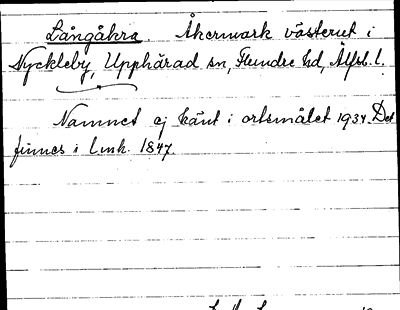 Långåkra. Åkermark västerut i
Nyckleby, Upphärad sn, Flundre hd, Älfsb. l.
Namnet ej känt i ortsmålet 1934. Det
finnes i lmh. 1847.